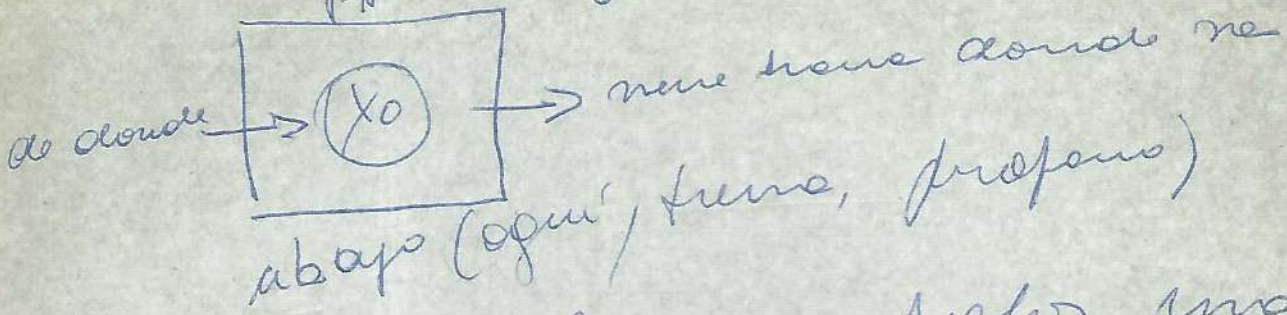 de donde → Yo → viene hacia donde va
abajo (aquí, tierra, profano)